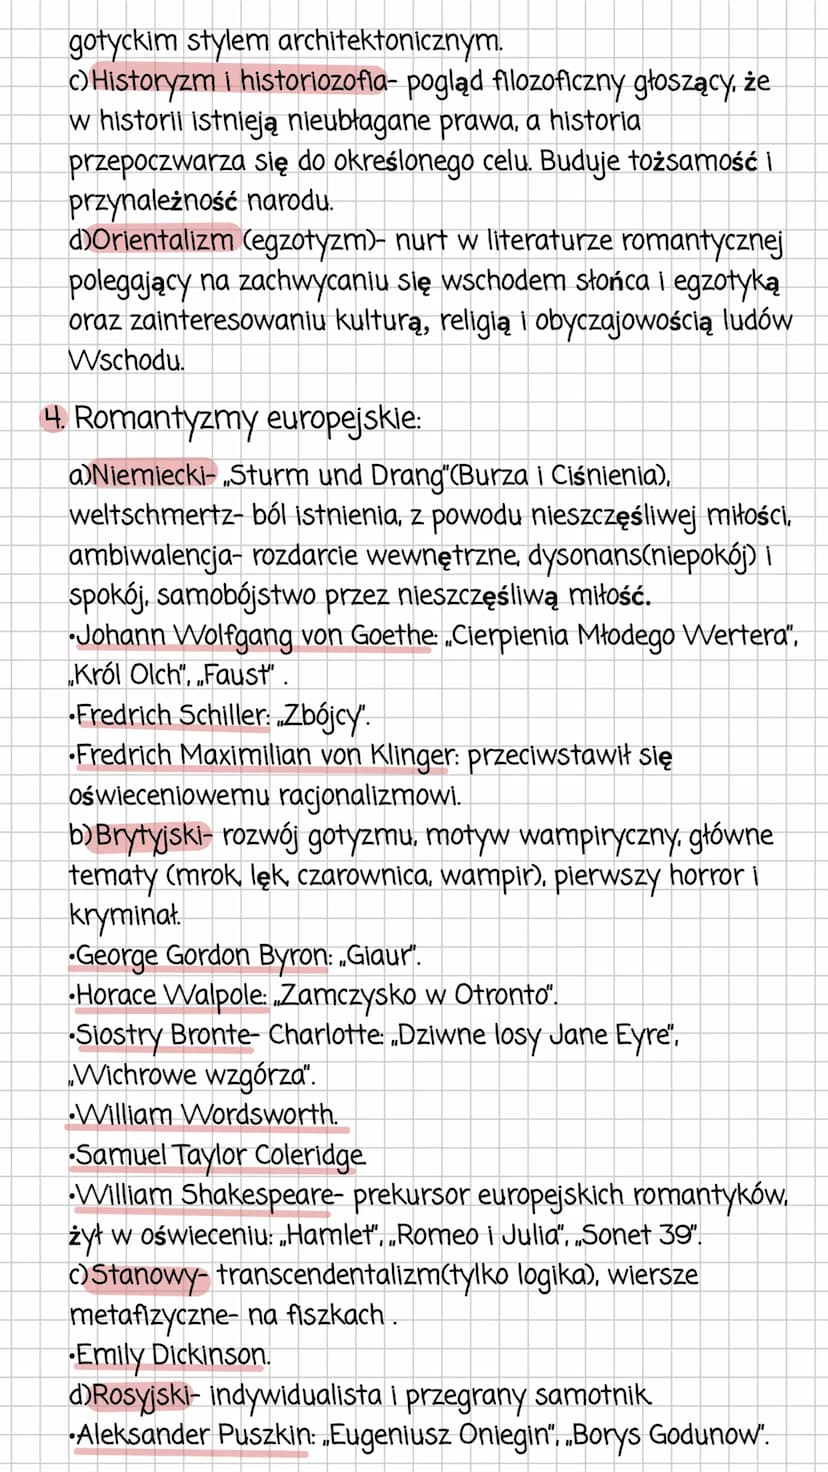 gotyckim stylem architektonicznym.
c)Historyzm i historiozofia- pogląd filozoficzny głoszący, że
w historii istnieją nieubłagane prawa, a historia
przepoczwarza się do określonego celu. Buduje tożsamość i
przynależność narodu.
d)Orientalizm (egzotyzm)- nurt w literaturze romantycznej
polegający na zachwycaniu się wschodem słońca i egzotyką
oraz zainteresowaniu kulturą, religią i obyczajowością ludów
Wschodu.
4. Romantyzmy europejskie:
a)Niemiecki- „Sturm und Drang"(Burza i Ciśnienia),
weltschmertz- ból istnienia, z powodu nieszczęśliwej miłości,
ambiwalencja- rozdarcie wewnętrzne, dysonans(niepokój) i
spokój, samobójstwo przez nieszczęśliwą miłość.
•Johann Wolfgang von Goethe: „Cierpienia Młodego Wertera",
„Król Olch", „Faust" .
•Fredrich Schiller: „Zbójcy".
•Fredrich Maximilian von Klinger: przeciwstawił się
oświeceniowemu racjonalizmowi.
b)Brytyjski- rozwój gotyzmu, motyw wampiryczny, główne
tematy (mrok, lęk, czarownica, wampir), pierwszy horror i
kryminał.
•George Gordon Byron: „Giaur".
•Horace Walpole: „Zamczysko w Otronto".
•Siostry Bronte- Charlotte: „Dziwne losy Jane Eyre",
„Wichrowe wzgórza".
•William Wordsworth.
•Samuel Taylor Coleridge
•William Shakespeare- prekursor europejskich romantyków,
żył w oświeceniu: „Hamlet", „Romeo i Julia", „Sonet 39".
c)Stanowy- transcendentalizm(tylko logika), wiersze
metafizyczne- na fiszkach .
•Emily Dickinson.
d)Rosyjski- indywidualista i przegrany samotnik
•Aleksander Puszkin: „Eugeniusz Oniegin", „Borys Godunow".